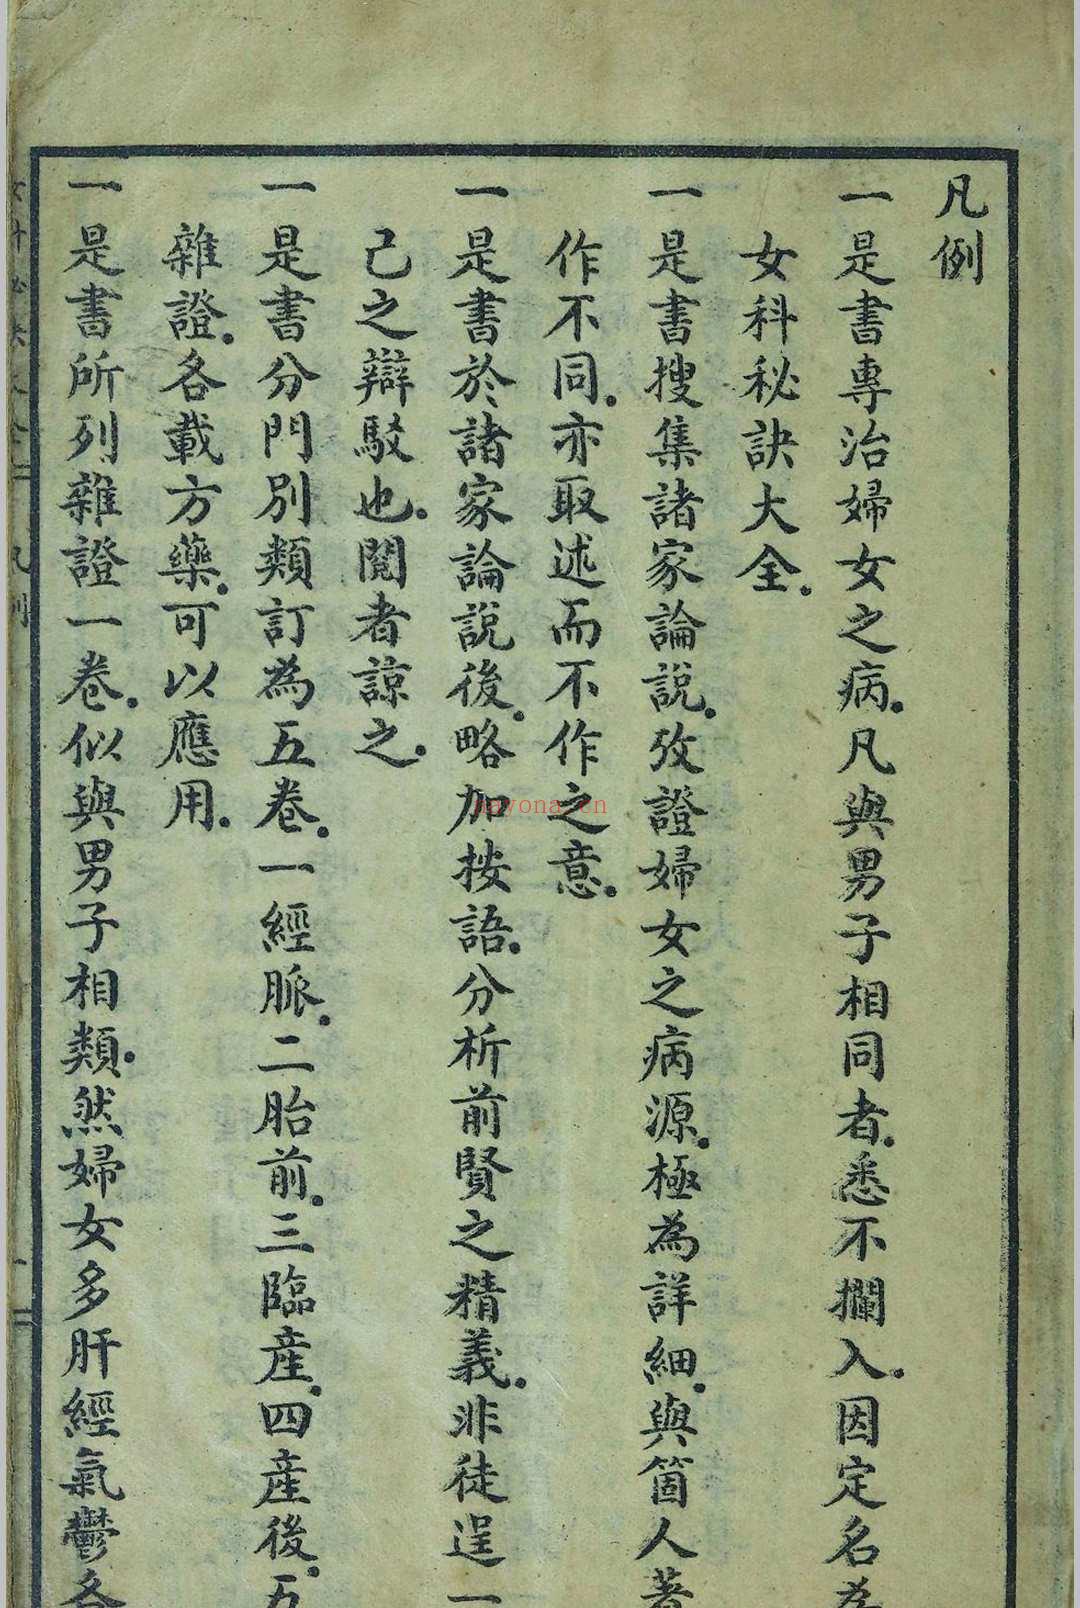 凡例
一是書專治婦女之病．凡與男子相同者．悉不攔入．因定名為
女科秘訣大全．
一是書搜集諸家論說．攷證婦女之病源．極為詳細．與箇人著
作不同．亦取述而不作之意．
一是書於諸家論說後．略加按語．分析前賢之精義．非徒逞一
己之辯駁也．閱者諒之．
一是書分門別類訂為五卷．一經脈．二胎前．三臨產．四產後．五
雜證．各載方藥．可以應用．
一是書所列雜證一卷．似與男子相類．然婦女多肝經氣鬱各
凡例
nayona.cn